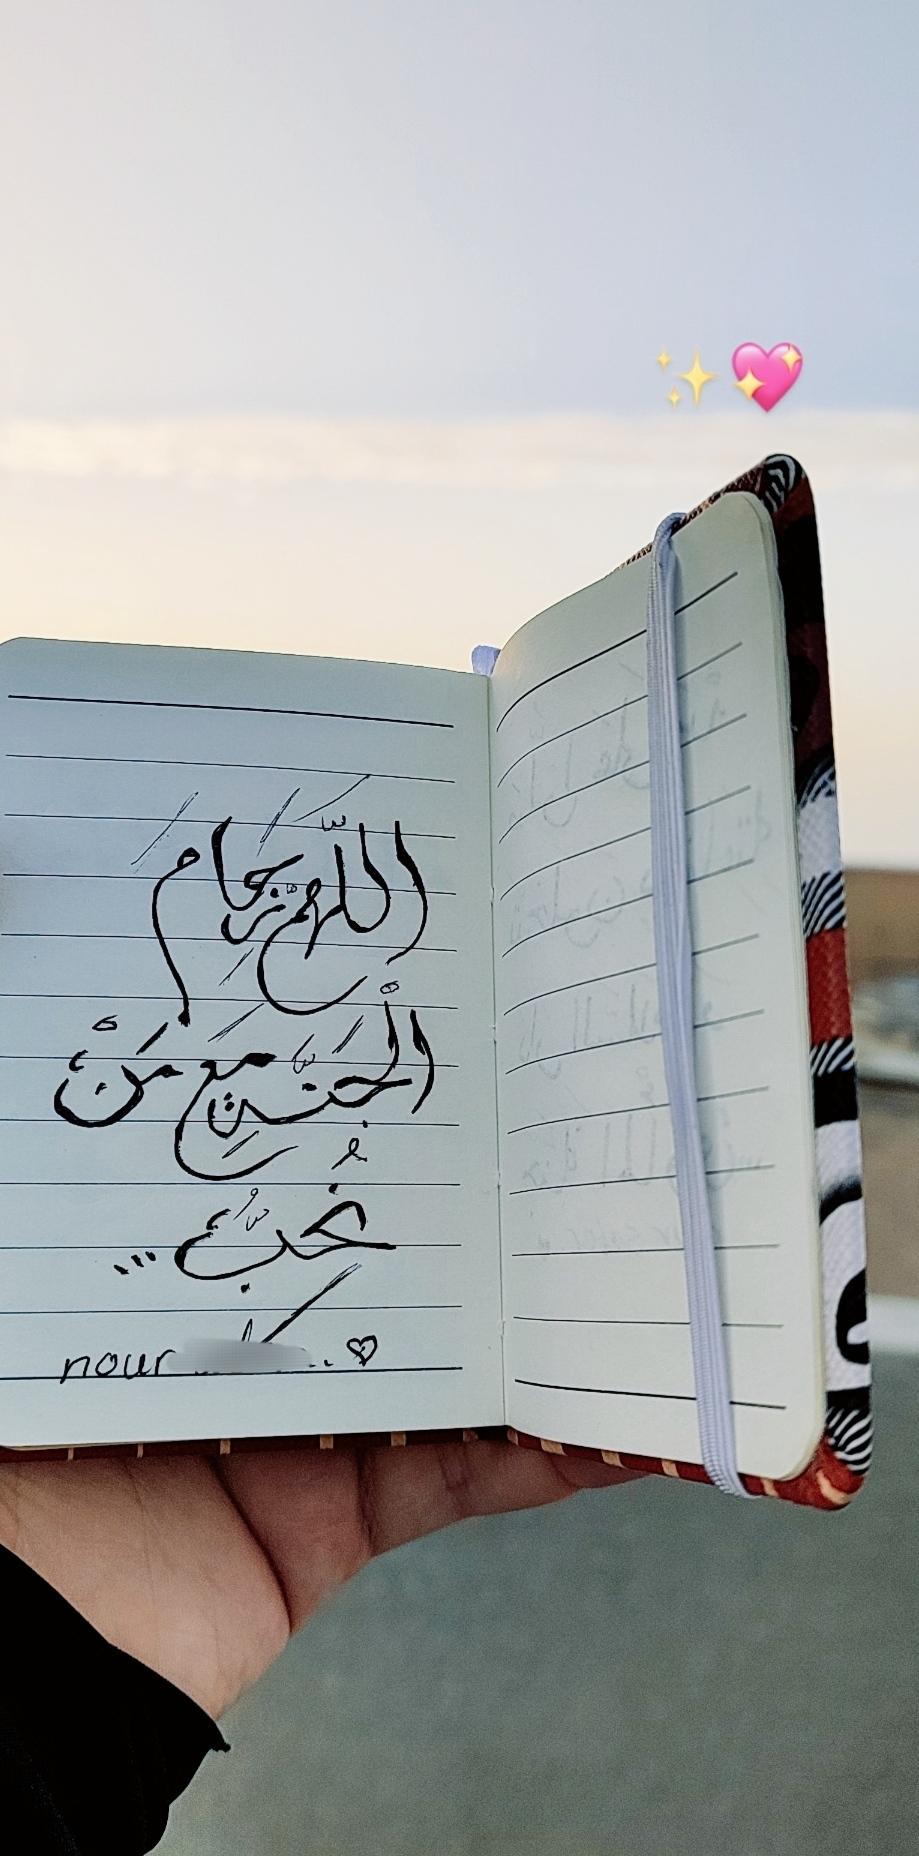 اللّهمَّ زِحَامَ
الْجَنَّةِ مَعَ مَنْ
نُحِبُّ ...
nour .. ♡